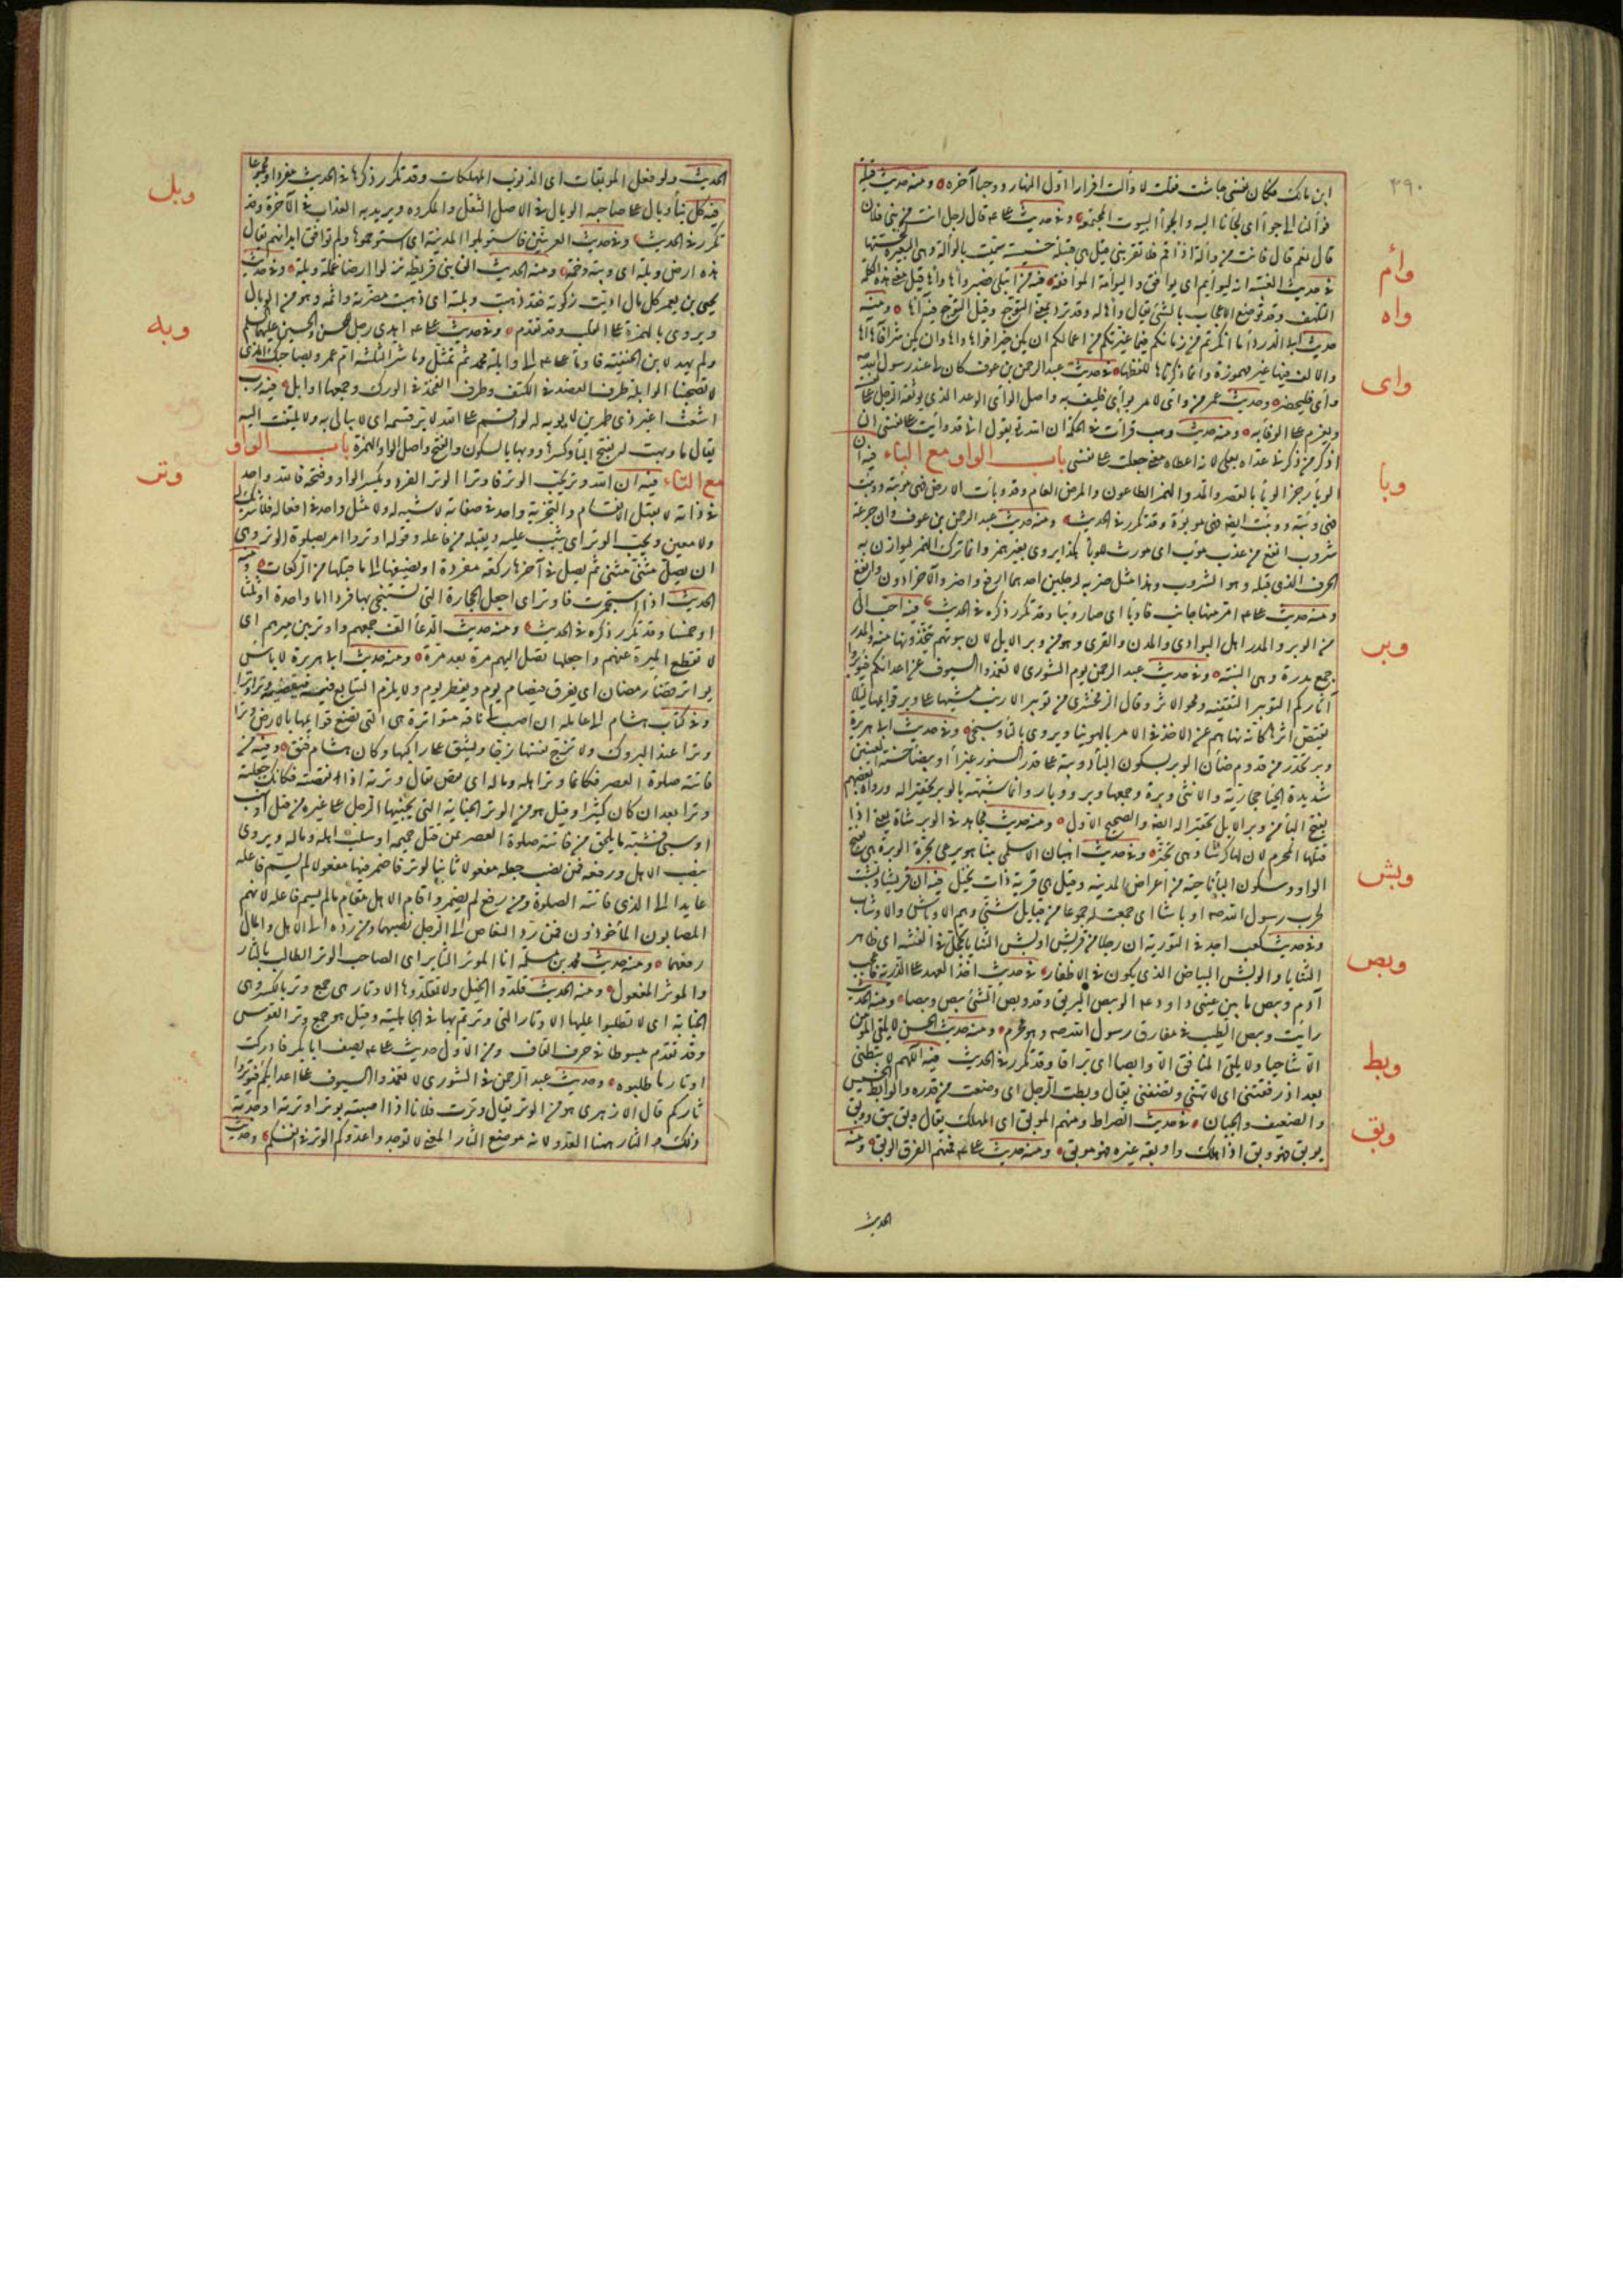 ٣٩٠
ابن مالك فكان نفسى جاشت فقلت لا وألت افرارا اول النهار وجبنا آخره ومنه حديث قيلة
فوألنا الى حواء اى لجأنا اليه والحواء البيوت المجتمعة وفى حديث على قال لرجل انت من بنى فلان
قال نعم قال فانت من وألة اذا قم فلا تقربنى قيل هى قبيلة خسيسة سميت بالوألة وهى البعرة لخستها
وأم
فى حديث الغيبة انه ليوائم اى يوافق والموائمة الموافقة فيه من ابتلى فصبر واها واها قيل معنى هذه الكلمة
واه
التلهف وقد توضع للاعجاب بالشئ يقال واها له وقد ترد بمعنى التوجع وقيل التوجع فيه آها ومنه
حديث ابى الدرداء ما انكرتم من زمانكم فيما غيرتم من اعمالكم ان يكن خيرا فواها واها وان يكن شرا فآها آها
والالف فيها غير مهموزة وانما ذكرناها للفظها فى حديث عبد الرحمن بن عوف كان لى عند رسول الله
واى
وأى فليحضر وحديث عمر من وأى لامرء بوأى فليف به واصل الوأى الوعد الذى يوثقه الرجل على نفسه
ويعزم على الوفاء به ومنه حديث وهب قرأت فى الحكمة ان الله تعالى يقول انى قد وأيت على نفسى ان
اذكر من ذكرنى عداه بعلى لانه اعطاه معنى جعلت على نفسى باب الواو مع الباء فيه ان
وبأ
الوباء رجز الوباء بالقصر والمد والهمز الطاعون والمرض العام وقد وبأت الارض فهى موبئة ووبئت
فهى وبئة ووبئت ايضا فهى موبوءة وقد تكرر فى الحديث ومنه حديث عبد الرحمن بن عوف وان جرعة
شروب انفع من عذب موب اى مورث للوباء هكذا يروى بغير همز وانما ترك الهمز ليوازن به
الحرف الذى قبله وهو الشروب وهذا مثل ضربه لرجلين احدهما ارفع واضر والآخر ادون وانفع
ومنه حديث على امر منها جانب فاوبأ اى صار وبيا وقد تكرر ذكره فى الحديث فيه احب الى
وبر
من الوبر والمدر اهل البوادى والمدن والقرى وهو من وبر الابل لان بيوتهم يتخذونها منه والمدر
جمع مدرة وهى البنية وفى حديث عبد الرحمن يوم الشورى لا تغمدوا السيوف عن اعدائكم فتوبروا
آثاركم التوبير التعفية ومحو الاثر وقال الزمخشرى من توبير الارنب مشيها على وبر قوائمها لئلا
يقتص اثرها كانه نهاهم عن الاخذ فى الامر بالهوينا ويروى بالتاء وسيجئ وفى حديث ابى هريرة
وبر تحدر من قدوم ضأن الوبر بسكون الباء دويبة على قدر السنور غبراء او بيضاء حسنة العينين
شديدة الحياء حجازية والانثى وبرة وجمعها وبر ووبار وانما شبهه بالوبر تحقيرا له ورواه بعضهم
بفتح الباء من وبر الابل تحقيرا له ايضا والصحيح الاول ومنه حديث مجاهد فى الوبر شاة يعنى اذا
قتلها المحرم لان لها كرشا وهى تجتر وفى حديث اهبان الاسلمى بينا هو يرعى بحرة الوبرة هى بفتح
الواو وسكون الباء ناحية من اعراض المدينة وقيل هى قرية ذات نخيل فيه ان قريشا وبشت
وبش
لحرب رسول الله اوباشا اى جمعت له جموعا من قبايل شتى وهم الاوباش والاوشاب
وفى حديث كعب اجد فى التورية ان رجلا من قريش اوبش الثنايا يحجل فى الفتنة اى ظاهر
الثنايا والوبش البياض الذى يكون فى الاظفار فى حديث اخذ العهد على الذرية فاعجب
وبص
آدم وبيص ما بين عينى داود الوبيص البريق وقد وبص الشئ يبص وبيصا ومنه الحديث
رأيت وبيص الطيب فى مفارق رسول الله وهو محرم ومنه حديث الحسن لا يلقى المؤمن
الا شاحبا ولا يلقى المنافق الا وباصا اى براقا وقد تكرر فى الحديث فيه اللهم لا تبطنى
وبط
بعد اذ رفعتنى اى لا تهنى وتضعنى يقال وبطت الرجل اى وضعت من قدره والوابط الخسيس
والضعيف والجبان فى حديث الصراط ومنهم الموبق اى المهلك يقال وبق يبق ووبق
وبق
يوبق فهو وبق اذا هلك واوبقه غيره فهو موبق ومنه حديث على فمنهم الغرق الوبق ومنه
الحديث
الحديث ولو فعل الموبقات اى الذنوب المهلكات وقد تكرر ذكرها فى الحديث مفردا ومجموعا
وبل
فيه كل بناء وبال على صاحبه الوبال فى الاصل الثقل والمكروه ويريد به العذاب فى الآخرة وقد
تكرر فى الحديث وفى حديث العرنيين فاستوبلوا المدينة اى استوخموها ولم توافق ابدانهم يقال
هذه ارض وبلة اى وبئة وخمة ومنه الحديث ان بنى قريظة نزلوا ارضا غملة وبلة وفى حديث
يحيى بن يعمر كل مال اديت زكوته فقد ذهبت وبلته اى ذهبت مضرته واثمه وهو من الوبال
ويروى بالهمزة على القلب وقد تقدم وفى حديث على اهدى رجل للحسن والحسين عليهما السلم
ولم يهد لابن الحنفية فاومأ على الى وابلة محمد ثم تمثل وما شر الثلثة ام عمرو بصاحبك الذى
لا تصحبينا الوابلة طرف العضد فى الكتف وطرف الفخذ فى الورك وجمعها اوابل فيه رب
وبه
اشعث اغبر ذى طمرين لا يوبه له لو اقسم على الله لابر قسمه اى لا يبالى به ولا يلتفت اليه
يقال ما وبهت له بفتح الباء وكسرها وبها ووبها بالسكون والفتح واصل الواو الهمزة باب الواو
مع التاء فيه ان الله وتر يحب الوتر فاوتروا الوتر الفرد وتكسر الواو وتفتح فالله واحد
وتر
فى ذاته لا يقبل الانقسام والتجزية واحد فى صفاته لا شبه له ولا مثل واحد فى افعاله فلا شريك له
ولا معين ويحب الوتر اى يثيب عليه ويقبله من فاعله وقوله اوتروا امر بصلوة الوتر وهى
ان يصلى مثنى مثنى ثم يصلى فى آخرها ركعة مفردة او يضيفها الى ما قبلها من الركعات ومنه
الحديث اذا استجمرت فاوتر اى اجعل الحجارة التى تستنجى بها فردا اما واحدة او ثلثا
او خمسا وقد تكرر ذكره فى الحديث ومنه حديث الدعاء الف جمعهم واوتر بين ميرهم اى
لا تقطع الميرة عنهم واجعلها تصل اليهم مرة بعد مرة ومنه حديث ابى هريرة لا باس
ان يواتر قضاء رمضان اى يفرقه فيصوم يوم ويفطر يوم ولا يلزم التتابع فيه فيقضيه وترا وترا
وفى كتاب هشام الى عامله ان اصب لى ناقة مواترة هى التى تضع قوائمها بالارض وترا
وترا عند البروك ولا تزج نفسها زجا فيشق على راكبها وكان بهشام فتق وفيه من
فاتته صلوة العصر فكانما وتر اهله وماله اى نقص يقال وترته اذا نقصته فكانك جعلته
وترا بعد ان كان كثيرا وقيل هو من الوتر الجناية التى يجنيها الرجل على غيره من قتل او نهب
او سبى فشبه ما يلحق من فاتته صلوة العصر بمن قتل حميمه او سلب اهله وماله ويروى
بنصب الاهل ورفعه فمن نصب جعله مفعولا ثانيا لوتر واضمر فيها مفعولا لم يسم فاعله
عايدا الى الذى فاتته الصلوة ومن رفع لم يضمر واقام الاهل مقام ما لم يسم فاعله لانهم
المصابون الماخوذون فمن رد النقص الى الرجل نصبهما ومن رده الى الاهل والمال
رفعهما ومنه حديث محمد بن مسلمة انا الموتور الثاير اى الصاحب الوتر الطالب بالثار
والموتور المفعول ومنه الحديث قلدوا الخيل ولا تقلدوها الاوتار هى جمع وتر بالكسر وهى
الجناية اى لا تطلبوا عليها الاوتار التى وترتم بها فى الجاهلية وقيل هو جمع وتر القوس
وقد تقدم مبسوطا فى حرف القاف ومن الاول حديث على يصف ابا بكر فادركت
اوتار ما طلبوه وحديث عبد الرحمن فى الشورى لا تغمدوا السيوف عن اعدائكم فتوتروا
ثاركم قال الازهرى هو من الوتر يقال وترت فلانا اذا اصبته بوتر واوترته اوجدته
ذلك والثار ههنا العدو لانه موضع الثار المعنى لا توجدوا عدوكم الوتر فى انفسكم وحديث